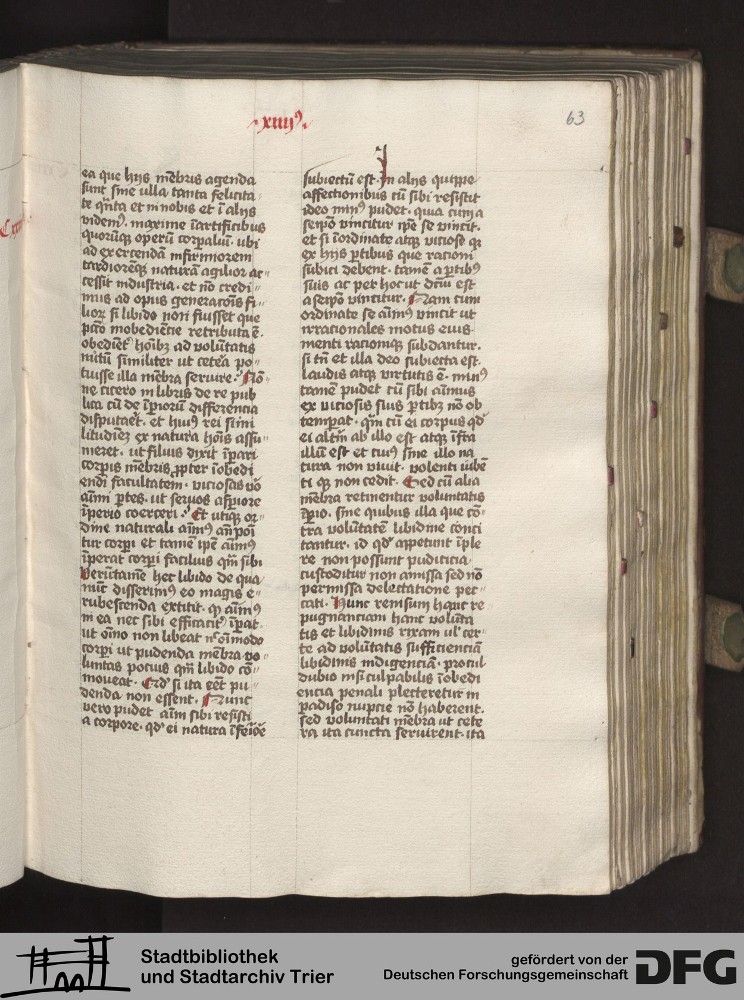 xiiij⁹
63
ea que hijs mēbris agenda
sunt sine ulla tanta felicita
te q̄nta et in nobis et ī alijs
videm⁹. maxime ī artificibus
quorūq; operū corpaliū. ubi
ad exercendā infirmiorem
tardioremq; naturā agilior ac
cessit industria. et nō credi
mus ad opus generacōis fi
lioꝝ si libido non fuisset que
pctō inobediētie retributa ē.
obediēt⁹ hoībꝫ ad volūtatis
nutū similiter ut cetēa po
tuisse illa mēbra servire. Nō
ne cicero in libris de re pub
lica cū de īperioꝝ differēcia
disputaēt. et hui⁹ rei simi
litudiēꝫ ex natura hoīs assu
meret. ut filiis dixit īpari
corpis mēbris ꝓpter īobedi
endi facultatem. viciosas vō
aīmi ꝑtes. ut servos aspiore
īperio coerceri. Et utiq; or
dine naturali aīm⁹ aīponi
tur corpi et tamē ipē aīm⁹
īperat corpi facilius qm̄ sibi
Verūtamē hec libido de qua
nūc disserim⁹ eo magis e
rubescenda extitit. qꝫ aīm⁹
in ea nec sibi efficacit̄ īpat.
ut oīno non libeat nᶜ oīmodo
corpi ut pudenda mēbra vo
luntas potius qm̄ libido cō
moveat. Qd̓ si ita eēt pu
denda non essent. Nunc
vero pudet aīm sibi resisti
a corpore. qd̓ ei natura īferiōē
subiectū est. In alijs quippe
affectionibus cū sibi resistit
ideo min⁹ pudet. quia cum a
seipō vincitur ipē se vincit.
et si īordinate atq; viciose qꝫ
ex hijs ꝑtibus que racioni
subici debent. tamē a ꝑtibꝫ
suis ac per hoc ut dcm̄ est
a seipō vincitur. Nam cum
ordinate se aīm⁹ vincit ut
irrationales motus eius
menti racionīq; subdantur.
si tn̄ et illa deo subiecta est.
laudis atq; virtutis ē. min⁹
tamē pudet cū sibi aīmus
ex viciosis suis ꝑtibꝫ nō ob
tempat. qm̄ cū ei corpus qd̓
ei altm̄ ab illo est atq; īfra
illū est et cui⁹ sine illo na
tura non vivit. volenti iubē
ti qꝫ non cedit. Sed cū alia
mēbra retinentur voluntatis
īpio. sine quibus illa que cō
tra volūtatē libidine conci
tantur. id qd̓ appetunt īple
re non possunt pudicicia
custoditur non amissa sed nō
permissa delectatione pec
cati. Hunc renisum hanc re
pugnantiam hanc volūta
tis et libidinis rixam ul̓ cer
te ad volūtatis sufficienciā
libidinis indigenciā. procul
dubio nisi culpabilis īobedi
encia penali plecteretur in
padiso nuptie nō haberent.
sed voluntati mēbra ut cete
ra ita cuncta servirent. ita
Stadtbibliothek
und Stadtarchiv Trier
gefördert von der
Deutschen Forschungsgemeinschaft
DFG